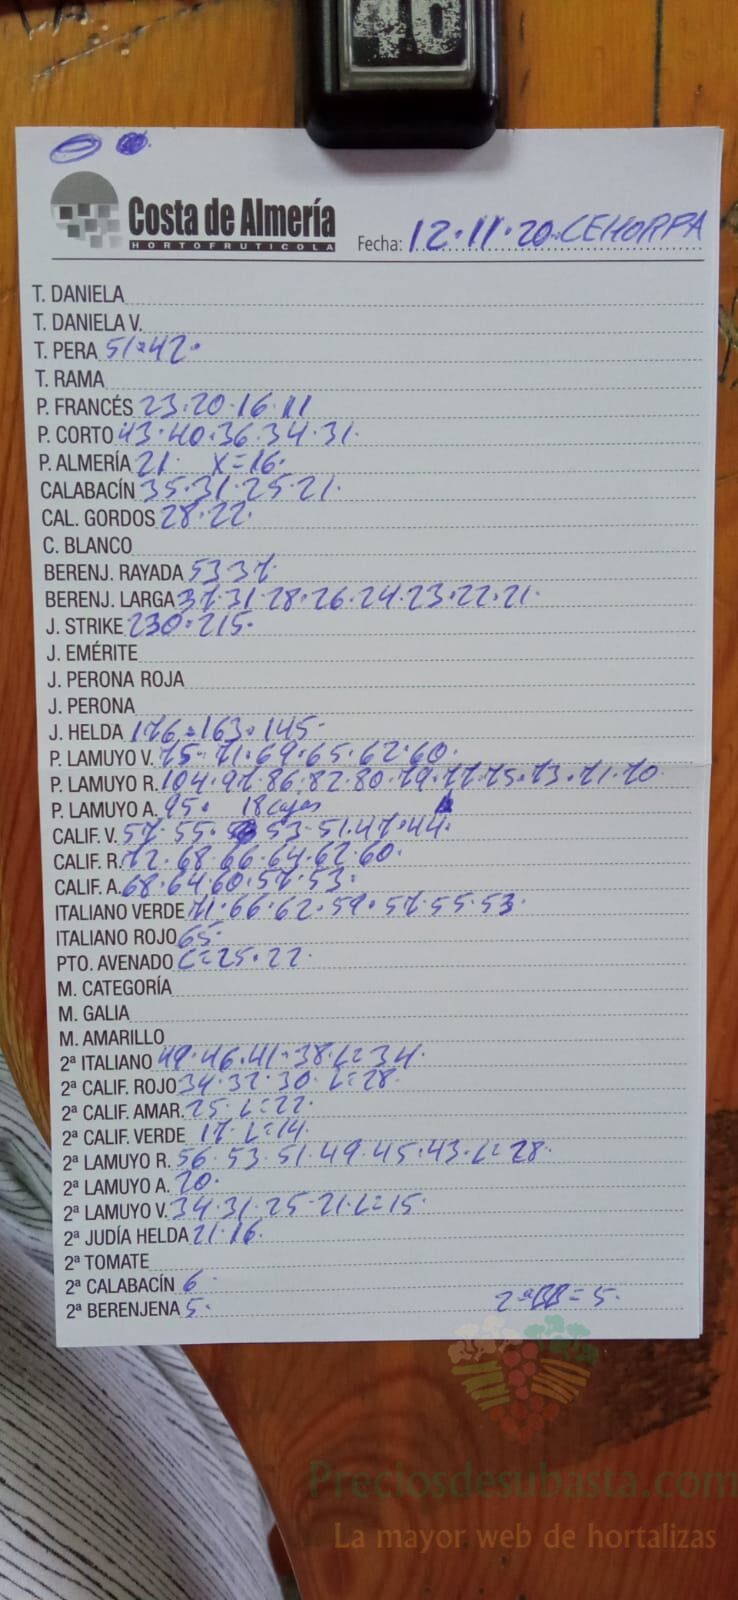 40
Costa de Almería
HORTOFRUTICOLA
Fecha: 12·11·20 CEHORPA
T. DANIELA
T. DANIELA V.
T. PERA 51·42·
T. RAMA
P. FRANCÉS 23·20·16·11
P. CORTO 43·40·36·34·31·
P. ALMERÍA 21· X=16·
CALABACÍN 35·31·25·21·
CAL. GORDOS 28·22·
C. BLANCO
BERENJ. RAYADA 53 37
BERENJ. LARGA 37·31·28·26·24·23·22·21·
J. STRIKE 230·215·
J. EMÉRITE
J. PERONA ROJA
J. PERONA
J. HELDA 176·163·145·
P. LAMUYO V. 75·71·69·65·62·60·
P. LAMUYO R. 104·97·86·82·80·79·77·75·73·71·70·
P. LAMUYO A. 95· 18 cajas
CALIF. V. 57·55· 53·51·47·44·
CALIF. R. 72·68·66·64·62·60·
CALIF. A. 68·64·60·57·53·
ITALIANO VERDE 71·66·62·59·57·55·53·
ITALIANO ROJO 65·
PTO. AVENADO L=25·22·
M. CATEGORÍA
M. GALIA
M. AMARILLO
2ª ITALIANO 49·46·41·38·L=34·
2ª CALIF. ROJO 34·32·30·L=28·
2ª CALIF. AMAR. 25·L=22·
2ª CALIF. VERDE 17 L=14·
2ª LAMUYO R. 56·53·51·49·45·43·L=28·
2ª LAMUYO A. 70·
2ª LAMUYO V. 34·31·25·21·L=15·
2ª JUDÍA HELDA 21·16·
2ª TOMATE
2ª CALABACÍN 6·
2ª BERENJENA 5· 2ªBB=5·
Preciosdesubasta.com
La mayor web de hortalizas